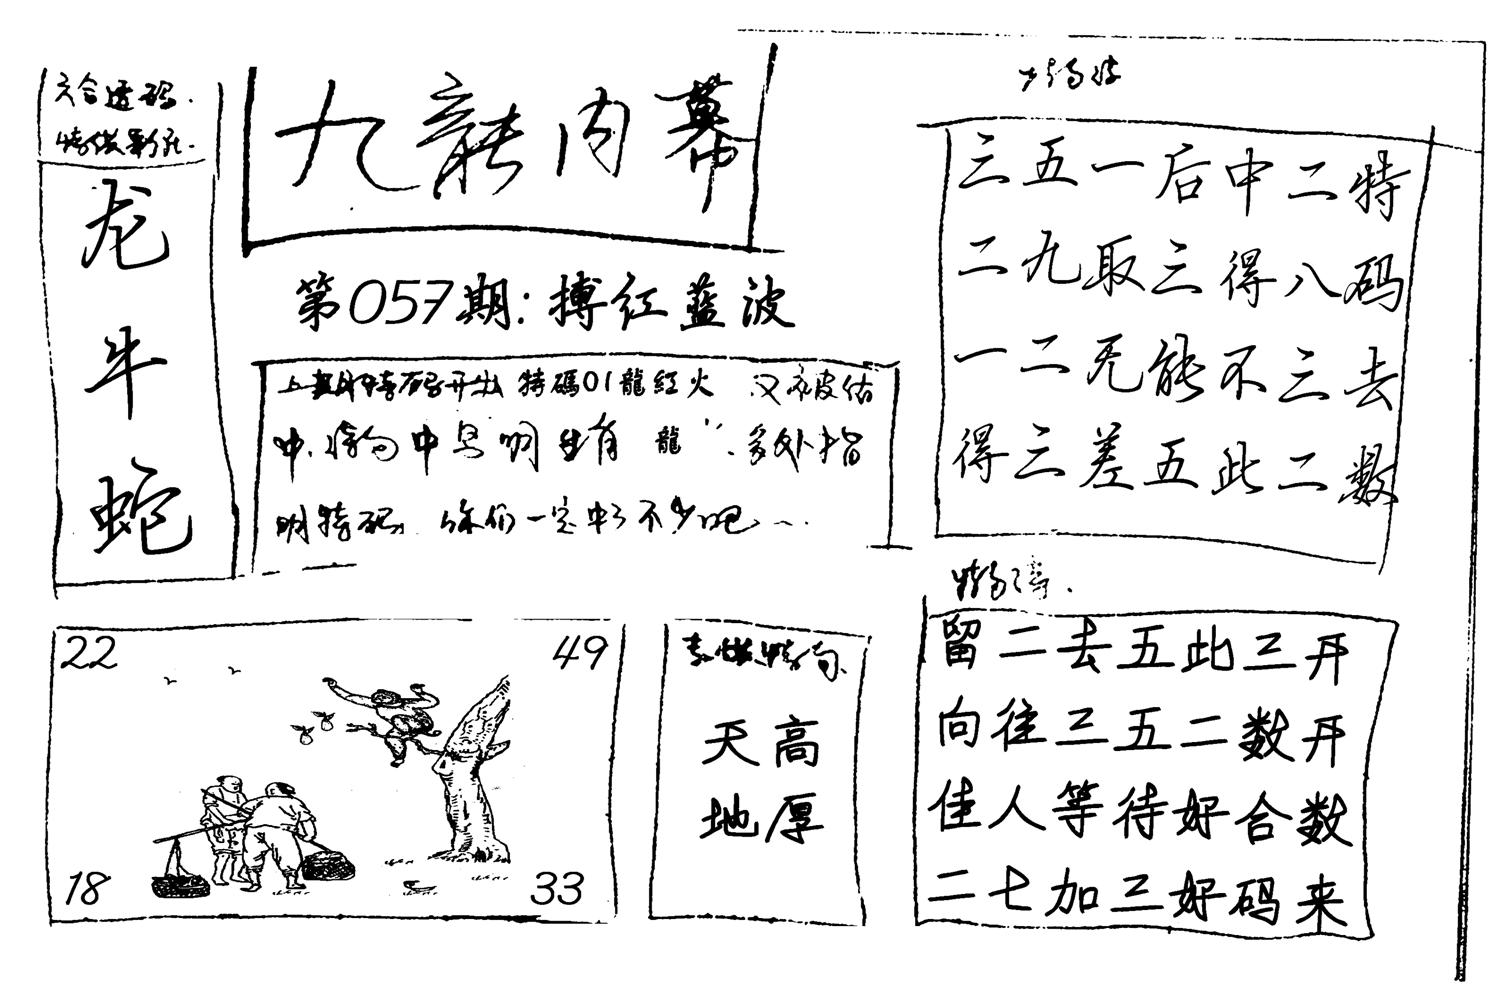 六合透码.
龙
牛
蛇
九龍内幕
第057期:搏红蓝波
上期特码开出 特碼01龍红火 又被估
中.特句中早明生肖 龍 .另外指
明特码. 你们一定中了不少吧
22
49
18
33
天高
地厚
三五一后中二特
二九取三得八码
一二无能不三去
得三差五此二数
留二去五此三开
向往三五二数开
佳人等待好合数
二七加三好码来